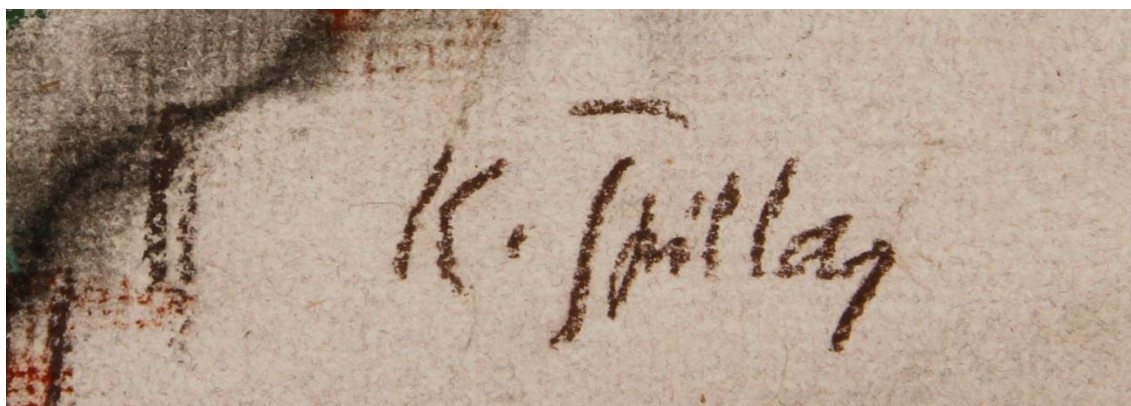 K. Spillar